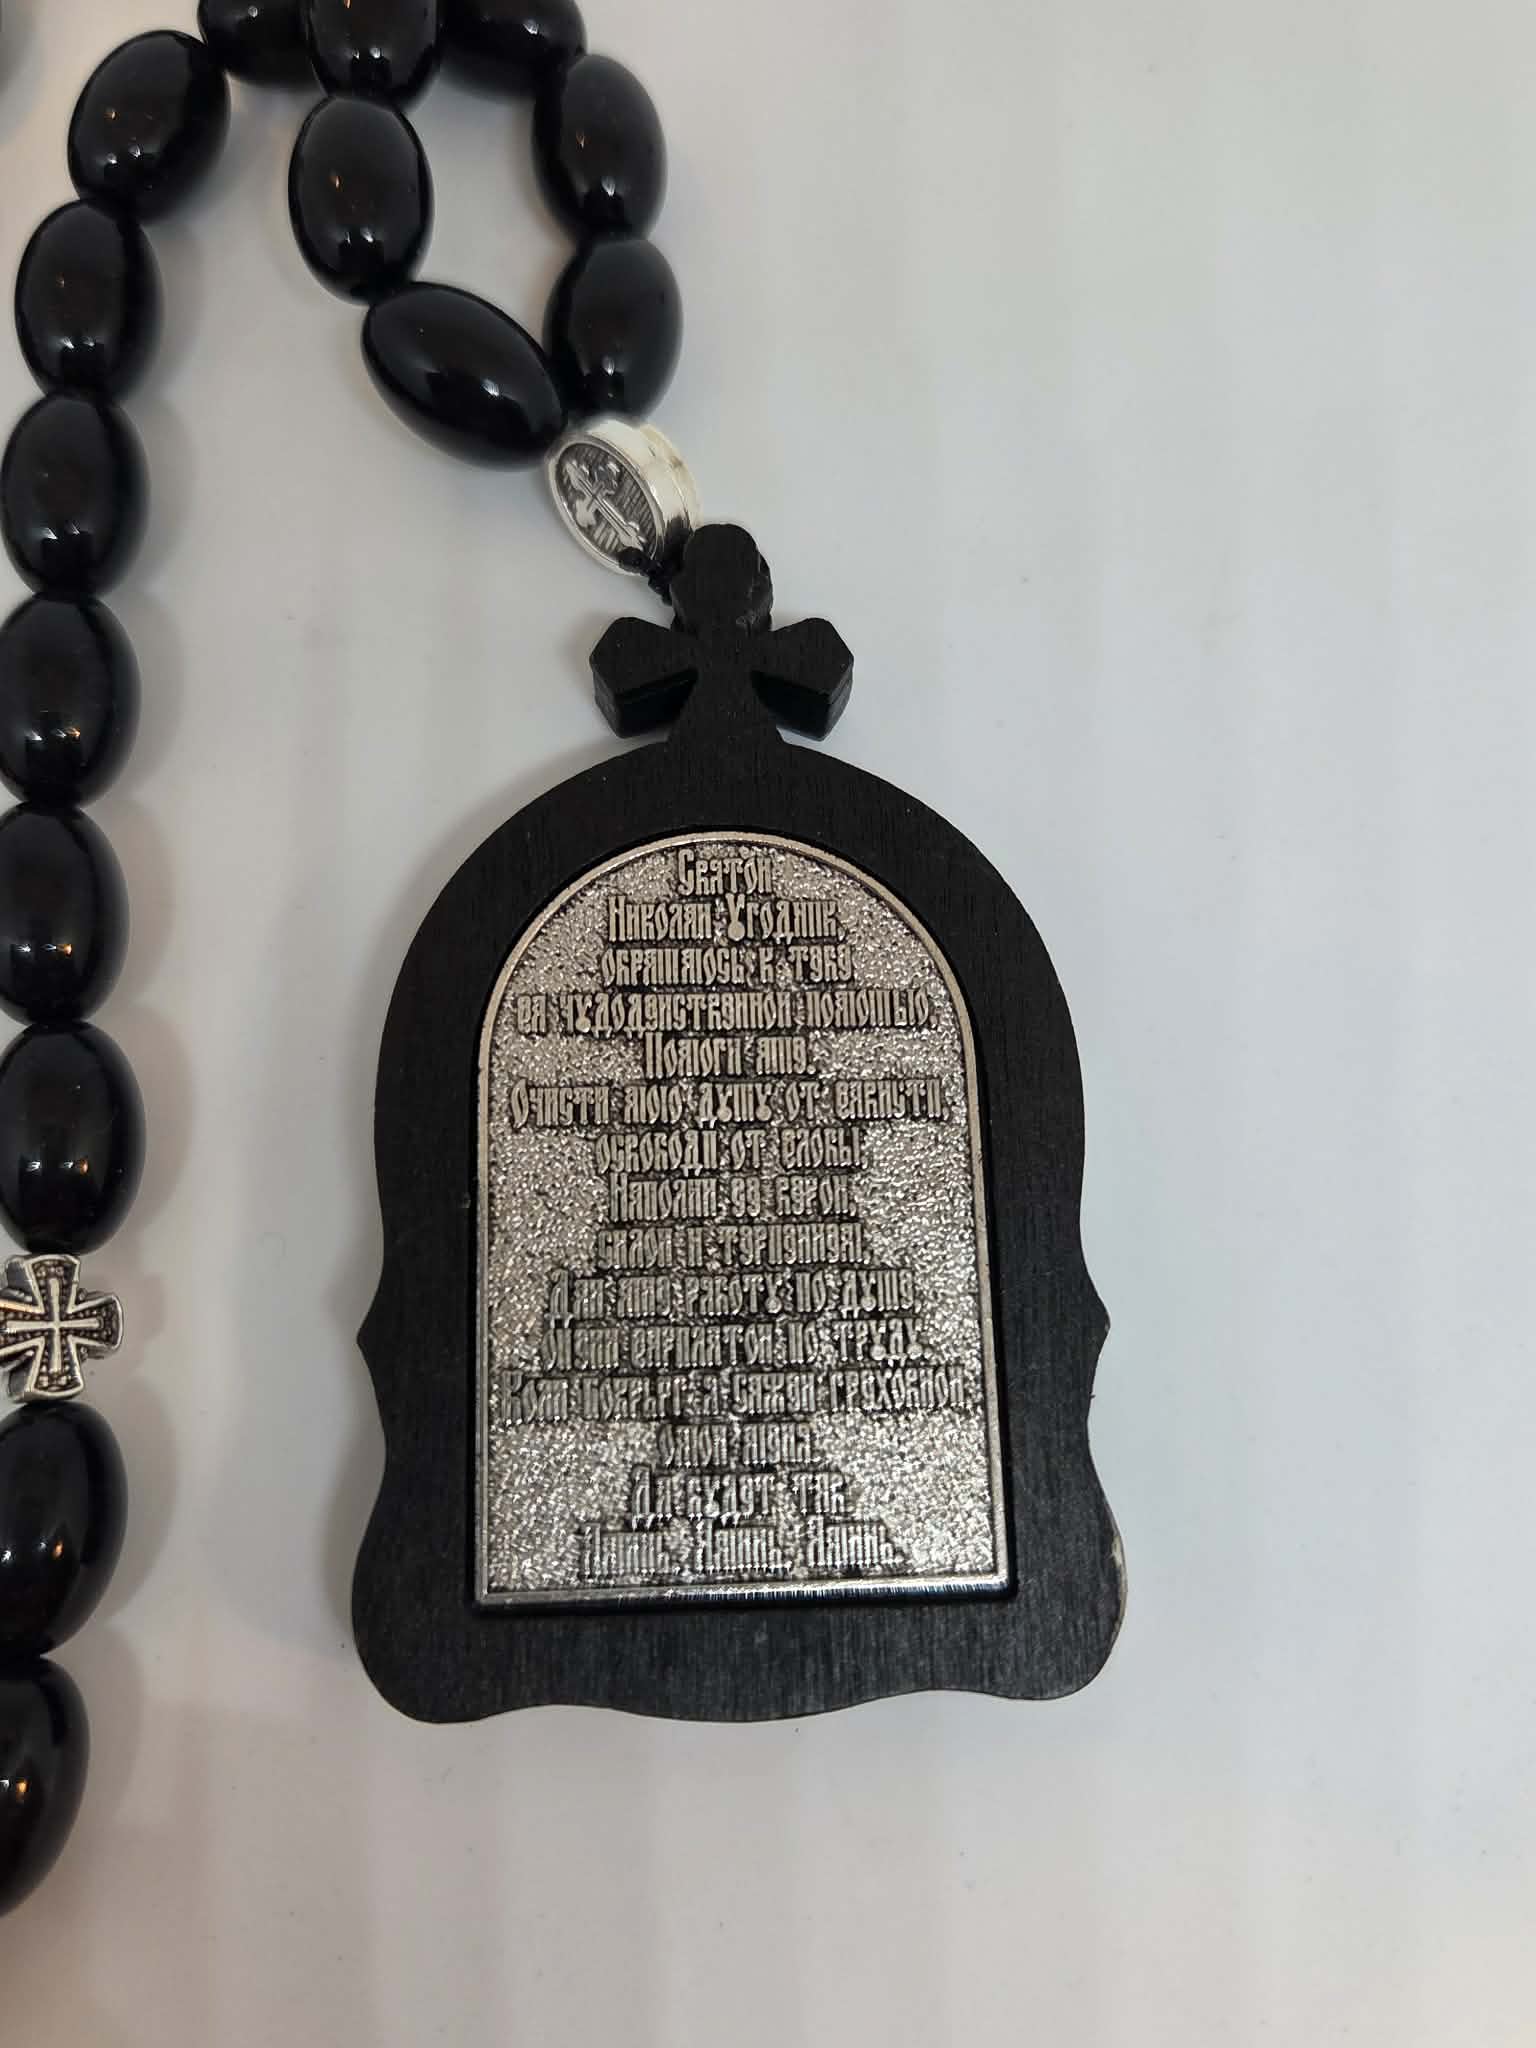 Святой
Николай Угодник,
обращаюсь к тебе
за чудодейственной помощью.
Помоги мне.
Очисти мою душу от зависти,
освободи от злобы,
Наполни ее верой,
силой и терпением.
Дай мне работу по душе,
с зарплатой по труду.
грехы
Да будет так
Аминь. Аминь. Аминь.